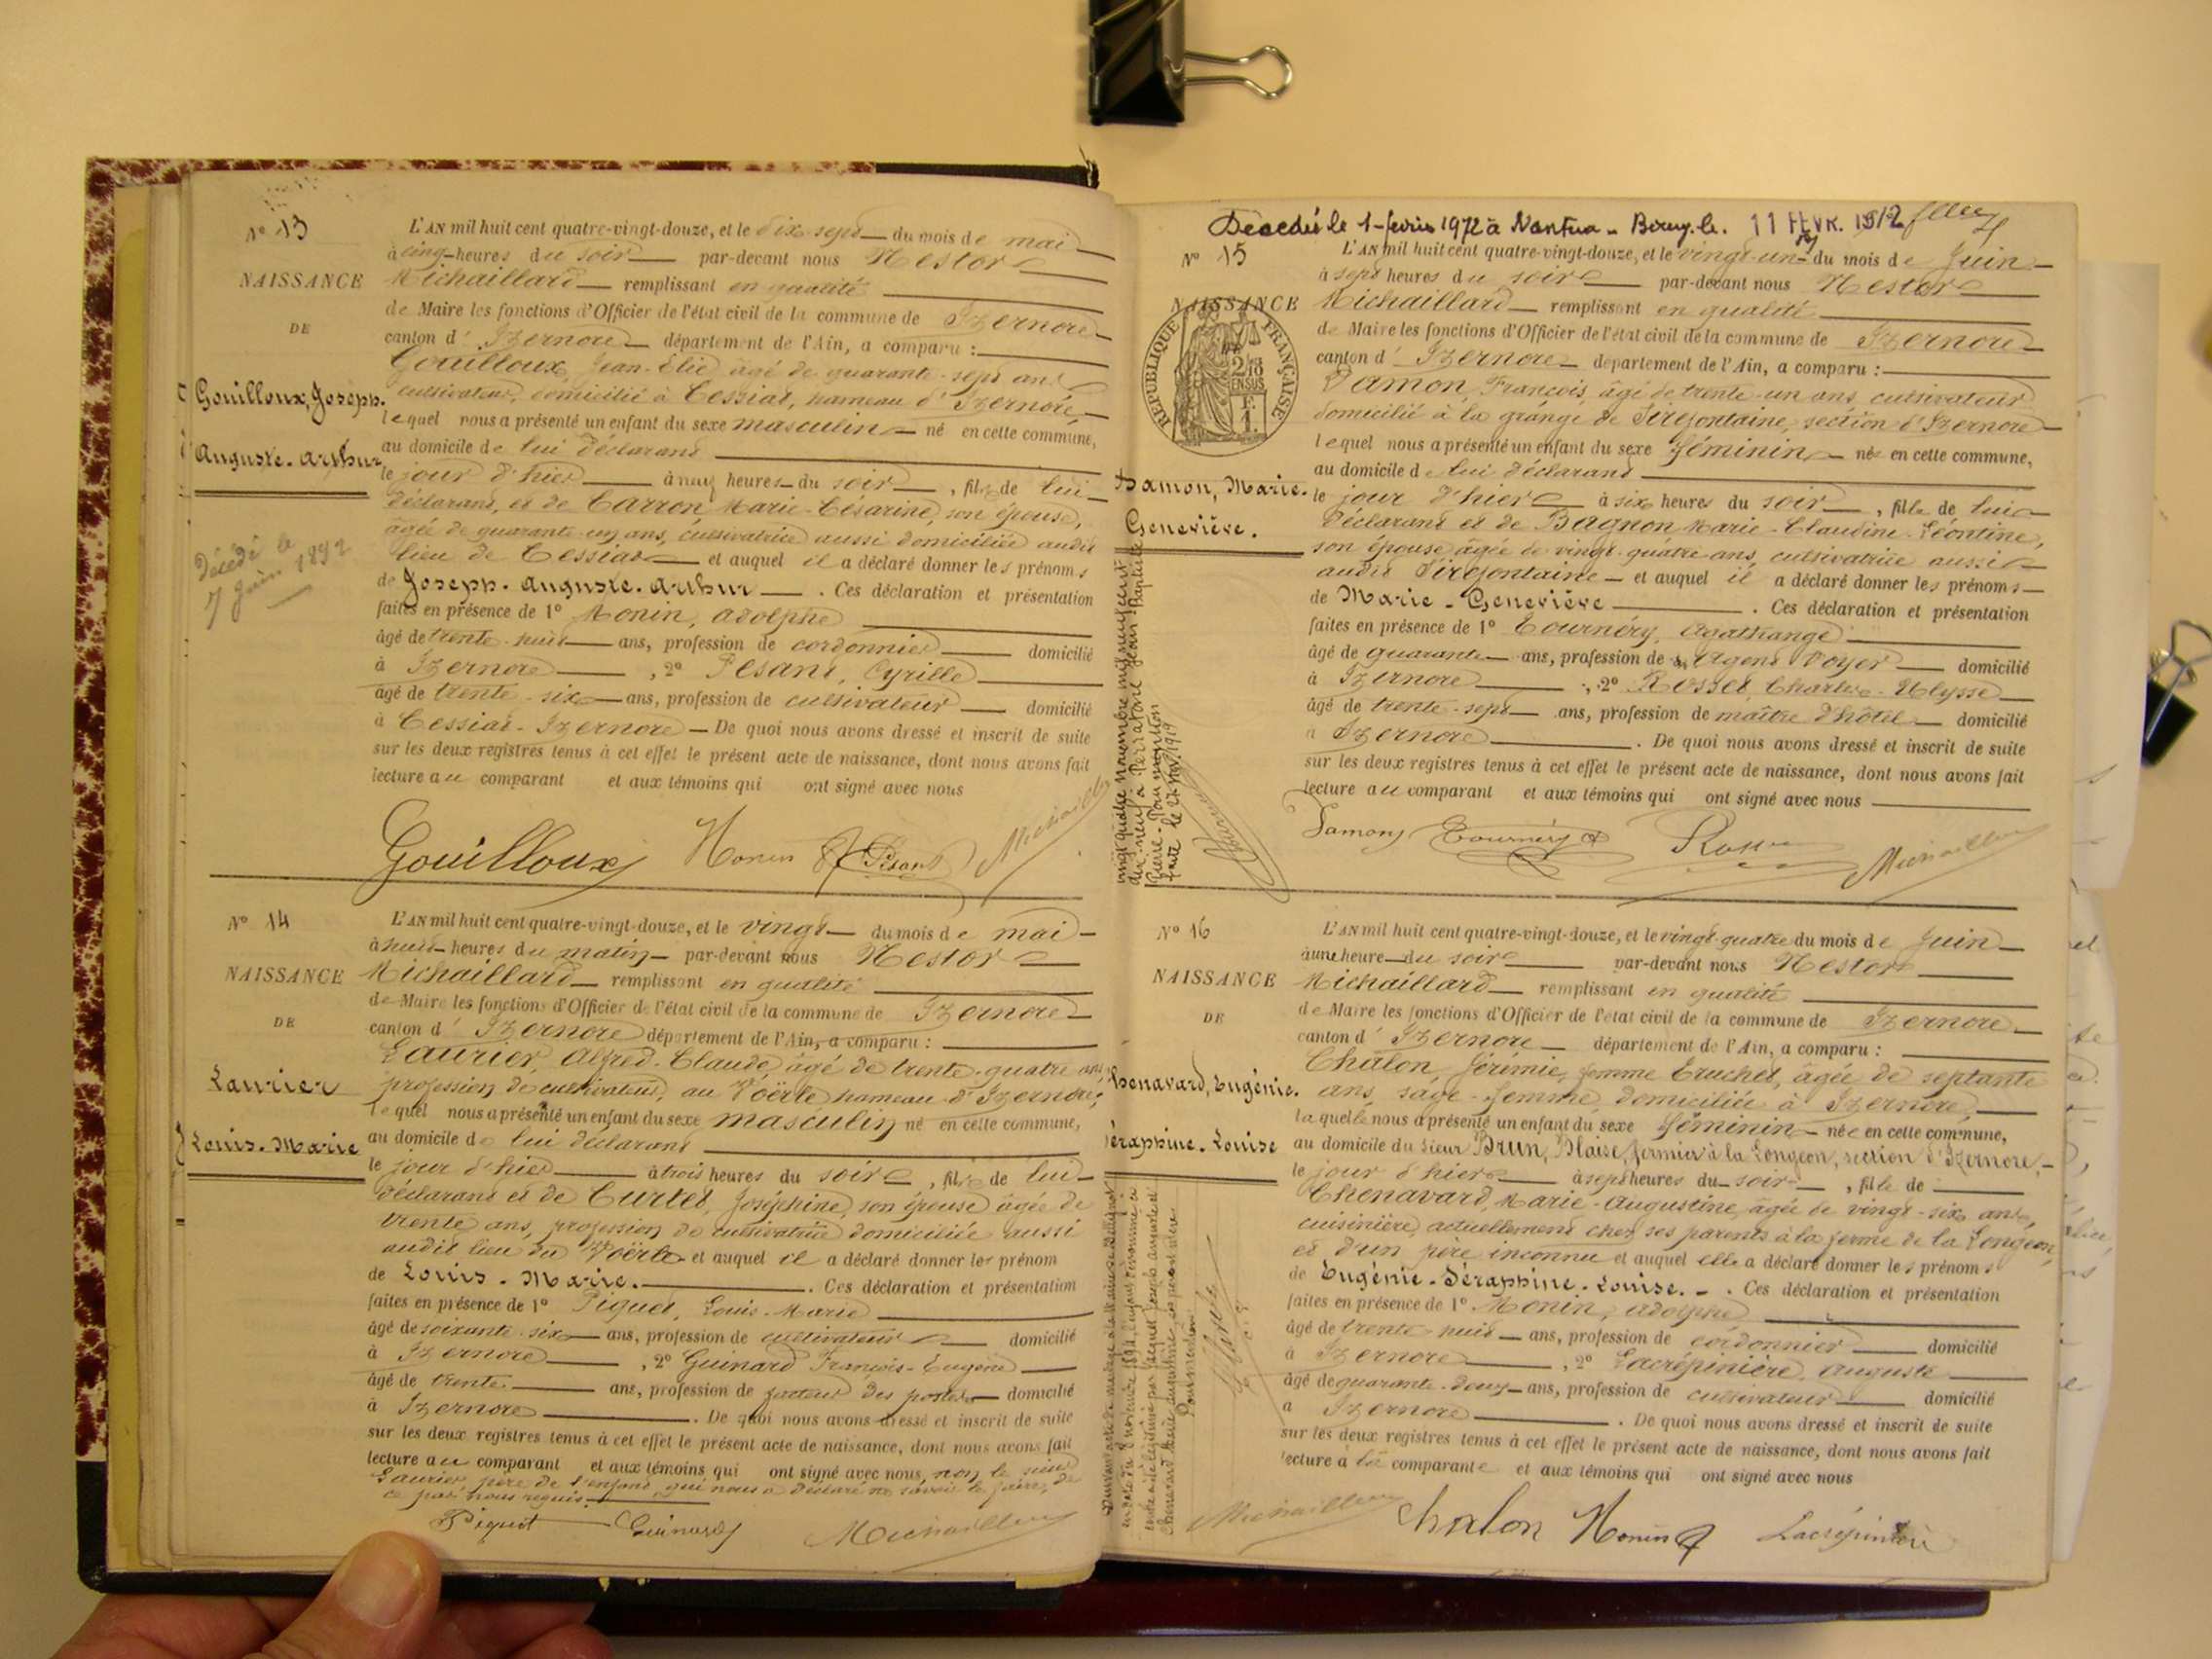 N° 13
NAISSANCE
DE
Gouilloux, Joseph.
Auguste. Arthur
Décédé le
7 Juin 1892
L'AN mil huit cent quatre-vingt-douze, et le dix-sept du mois de mai
à cinq heures du soir par-devant nous Nestor
Michaillard remplissant en qualité
de Maire les fonctions d'Officier de l'état civil de la commune de Izernore
canton d'Izernore département de l'Ain, a comparu :
Gouilloux, Jean-Elie âgé de quarante-sept ans
cultivateur, domicilié à Cessiat, hameau d'Izernore
lequel nous a présenté un enfant du sexe masculin né en cette commune,
au domicile de lui déclarant
le jour d'hier à neuf heures du soir, fils de lui
déclarant, et de Carron Marie-Césarine, son épouse,
âgée de quarante-un ans, cultivatrice aussi domiciliée audit
lieu de Cessiat et auquel il a déclaré donner les prénoms
de Joseph-Auguste-Arthur. Ces déclaration et présentation
faites en présence de 1° Monin, Adolphe
âgé de trente-huit ans, profession de cordonnier domicilié
à Izernore, 2° Pesant, Cyrille
âgé de trente-six ans, profession de cultivateur domicilié
à Cessiat-Izernore De quoi nous avons dressé et inscrit de suite
sur les deux registres tenus à cet effet le présent acte de naissance, dont nous avons fait
lecture au comparant et aux témoins qui ont signé avec nous
Gouilloux Monin A Pesant Michaillard
N° 14
NAISSANCE
DE
Laurier
Louis-Marie
L'AN mil huit cent quatre-vingt-douze, et le vingt du mois de mai
à huit heures du matin par-devant nous Nestor
Michaillard remplissant en qualité
de Maire les fonctions d'Officier de l'état civil de la commune de Izernore
canton d'Izernore département de l'Ain, a comparu :
Laurier, Alfred-Claude âgé de trente-quatre ans,
profession de cultivateur, au Voërle hameau d'Izernore;
lequel nous a présenté un enfant du sexe masculin né en cette commune,
au domicile de lui déclarant
le jour d'hier à trois heures du soir, fils de lui
déclarant et de Curtet, Joséphine, son épouse âgée de
trente ans, profession de cultivatrice domiciliée aussi
audit lieu du Voërle et auquel il a déclaré donner les prénom
de Louis-Marie. Ces déclaration et présentation
faites en présence de 1° Piquet, Louis-Marie
âgé de soixante-six ans, profession de cultivateur domicilié
à Izernore, 2° Guinard François-Eugène
âgé de trente ans, profession de facteur des postes domicilié
à Izernore. De quoi nous avons dressé et inscrit de suite
sur les deux registres tenus à cet effet le présent acte de naissance, dont nous avons fait
lecture au comparant et aux témoins qui ont signé avec nous, non le sieur
Laurier père de l'enfant, qui nous a déclaré ne savoir le faire, de
ce par nous requis.
Piquet Guinard Michaillard
Décédée le 1 février 1972 à Nantua - Bourg. le. 11 FEVR. 1972
N° 15
NAISSANCE
DE
RÉPUBLIQUE FRANÇAISE
Damon, Marie.
Geneviève.
L'AN mil huit cent quatre-vingt-douze, et le vingt-un du mois de Juin
à sept heures du soir par-devant nous Nestor
Michaillard remplissant en qualité
de Maire les fonctions d'Officier de l'état civil de la commune de Izernore
canton d'Izernore département de l'Ain, a comparu :
Damon, François, âgé de trente-un ans, cultivateur
domicilié à la grange de Tirefontaine, section d'Izernore
lequel nous a présenté un enfant du sexe féminin née en cette commune,
au domicile de lui déclarant
le jour d'hier à six heures du soir, fille de lui
déclarant et de Bagnon Marie-Claudine-Léontine,
son épouse âgée de vingt-quatre ans, cultivatrice aussi
audit Tirefontaine et auquel il a déclaré donner les prénoms
de Marie-Geneviève. Ces déclaration et présentation
faites en présence de 1° Tournéry, Agathange
âgé de quarante ans, profession de Agent Voyer domicilié
à Izernore, 2° Rosset, Charles-Ulysse
âgé de trente-sept ans, profession de maître d'hôtel domicilié
à Izernore. De quoi nous avons dressé et inscrit de suite
sur les deux registres tenus à cet effet le présent acte de naissance, dont nous avons fait
lecture au comparant et aux témoins qui ont signé avec nous
Damon Tournéry Michaillard
vingt quatre Novembre mil neuf cent
dix-neuf à Perratone Jean Baptiste
Pierre. Pour mention
faite le 27 Nov. 1919
N° 16
NAISSANCE
DE
Chenavard, Eugénie.
Séraphine. Louise
L'AN mil huit cent quatre-vingt-douze, et le vingt-quatre du mois de Juin
à une heure du soir par-devant nous Nestor
Michaillard remplissant en qualité
de Maire les fonctions d'Officier de l'état civil de la commune de Izernore
canton d'Izernore département de l'Ain, a comparu :
Chalon, Jérémie, femme Truchet, âgée de septante
ans, sage-femme, domiciliée à Izernore,
laquelle nous a présenté un enfant du sexe féminin née en cette commune,
au domicile du sieur Brun, Blaise, fermier à la Longeon, section d'Izernore,
le jour d'hier à sept heures du soir, fille de
Chenavard, Marie-Augustine, âgée de vingt-six ans,
cuisinière, actuellement chez ses parents à la ferme de la Longeon,
et d'un père inconnu et auquel elle a déclaré donner les prénoms
de Eugénie-Séraphine-Louise. Ces déclaration et présentation
faites en présence de 1° Monin, Adolphe
âgé de trente-huit ans, profession de cordonnier domicilié
à Izernore, 2° Lacrépinière, Auguste
âgé de quarante-deux ans, profession de cultivateur domicilié
à Izernore. De quoi nous avons dressé et inscrit de suite
sur les deux registres tenus à cet effet le présent acte de naissance, dont nous avons fait
lecture à la comparante et aux témoins qui ont signé avec nous
Michaillard Chalon Monin A Lacrépinière
Pour mention